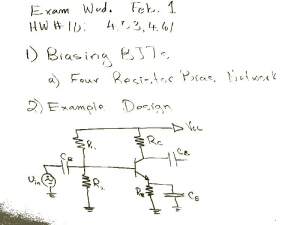 Exam Wed. Feb. 1
HW #10: 4.53, 4.61
1) Biasing BJTs
a) Four Resistor Bias Network
2) Example Design
Vcc
R1
Rc
CB
Vin
R2
RE
CE